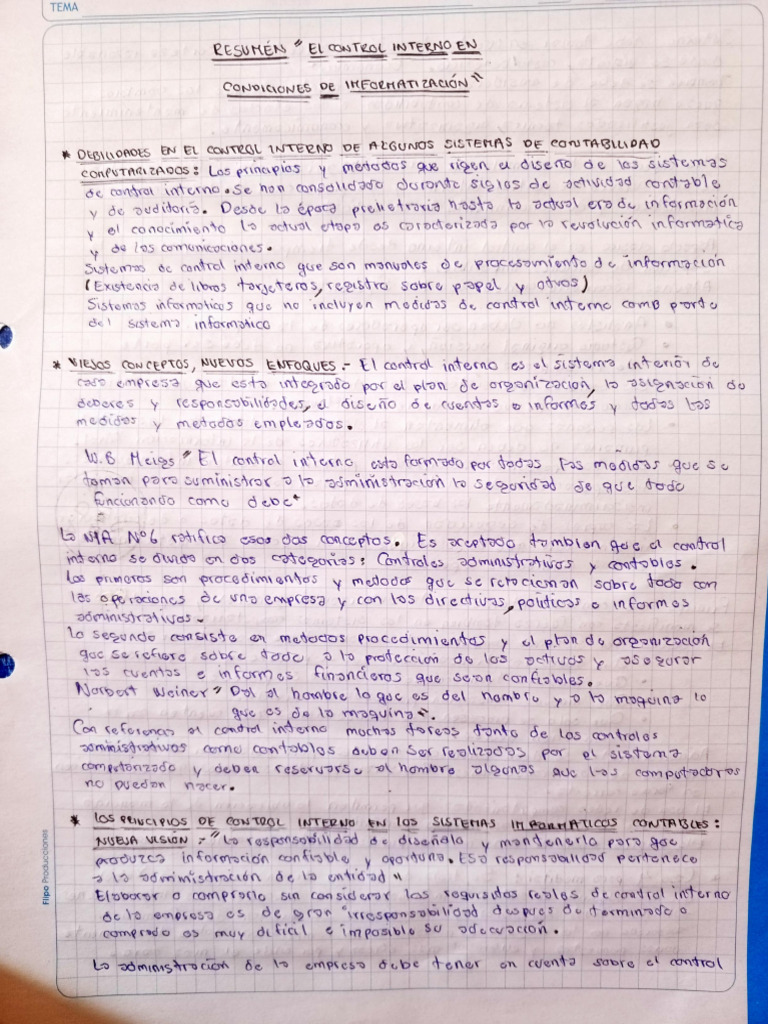 TEMA
RESUMÉN " EL CONTROL INTERNO EN
CONDICIONES DE IMFORMATIZACIÓN"
* DEBILIDADES EN EL CONTROL INTERNO DE ALGUNOS SISTEMAS DE CONTABILIDAD
COMPUTARIZADOS: Los principios y metodos que rigen el diseño de los sistemas
de control interno. Se han consolidado durante siglos de actividad contable
y de auditoria. Desde la época prehetraria hasta la actual era de información
y el conocimiento la actual etapa es caracterizada por la revolución informatica
y de los comunicaciones.
Sistemas de control interno que son manuales de procesamiento de información
(Existencia de libros tarjeteros, registro sobre papel y otros)
Sistemas informaticos que no incluyen medidas de control interno como parte
del sistema informatico
* VIEJOS CONCEPTOS, NUEVOS ENFOQUES.- El control interno es el sistema interiór de
cada empresa que esta integrado por el plan de organización, la asignación de
deberes y responsabilidades, el diseño de cuentas e informes y todas las
medidas y metodos empleados.
W.B Meigs " El control interno esta formado por todas las medidas que se
toman para suministrar a la administración la seguridad de que todo
funcionando como debe"
La NIA N°6 ratifica esos dos conceptos. Es aceptado tambien que el control
interno se divida en dos categorias: Controles administrativos y contables.
Los primeros son procedimientos y metodos que se relacionan sobre todo con
las operaciones de una empresa y con las directivas, politicas e informes
administrativos.
Lo segundo consiste en metodos procedimientos y el plan de organización
que se refiere sobre todo a la protección de los activos y asegurar
las cuentas e informes financieros que sean confiables.
Norbert Weiner " Dal al hombre lo que es del hombre y a la maquina lo
que es de la maquina".
Con referencia al control interno muchas tareas tanto de los controles
administrativos como contables deben ser realizados por el sistema
computarizado y deben reservarse al hombre algunas que las computadoras
no puedan hacer.
* LOS PRINCIPIOS DE CONTROL INTERNO EN LOS SISTEMAS IMFORMATICOS CONTABLES:
NUEVA VISIÓN.- "La responsabilidad de diseñalo y mantenerla para que
produzca información confiable y oportuna. Esa responsabilidad pertenece
a la administración de la entidad"
Elaborar o comprarlo sin considerar los requisitos reales de control interno
de la empresa es de gran irresponsabilidad despues de terminado o
comprado es muy dificil e imposible su adecuación.
La administración de la empresa debe tener en cuenta sobre el control
Flipo Producciones